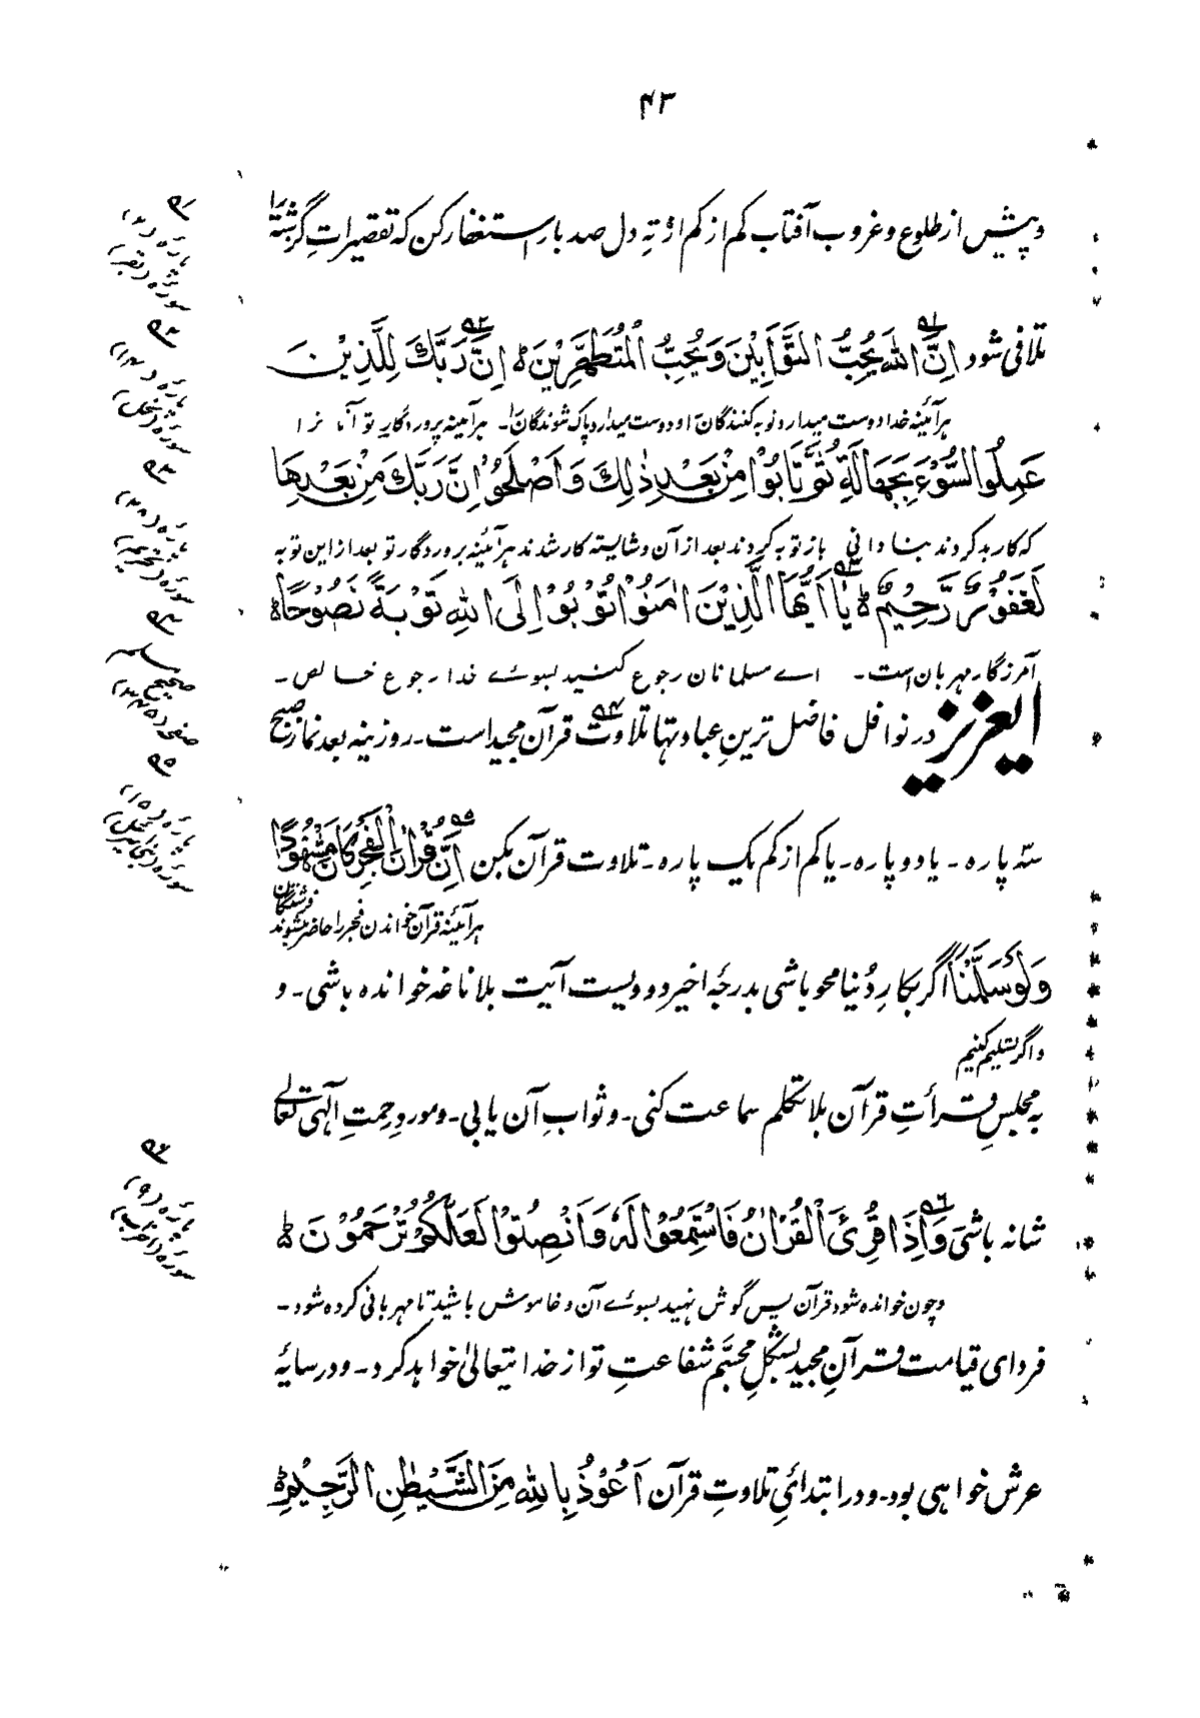 ۴۳
و پیش از طلوع و غروب آفتاب کم از کم از تهِ دل صد بار استغفار کن که تقصیراتِ گزشتہ را
تلافی شود اِنَّ اللهَ یُحِبُّ التَّوَّابِیْنَ وَیُحِبُّ الْمُتَطَهِّرِیْنَ ط اِنَّ رَبَّكَ لِلَّذِیْنَ
هرآئینه خدا دوست میدارد توبه کنندگان را و دوست میدارد پاک شوندگان را۔ هرآئینه پروردگارِ تو آنانرا
عَمِلُوا السُّوْءَ بِجَهَالَةٍ ثُمَّ تَابُوْا مِنْ بَعْدِ ذٰلِكَ وَاَصْلَحُوْا اِنَّ رَبَّكَ مِنْ بَعْدِهَا
که کار بد کردند بنادانی باز توبه کردند بعد از آن و شایسته کار شدند هرآئینه پروردگار تو بعد از این توبه
لَغَفُوْرٌ رَّحِیْمٌ ط یَا اَیُّهَا الَّذِیْنَ اٰمَنُوْا تُوْبُوْا اِلَی اللهِ تَوْبَةً نَّصُوْحًا ط
آمرزگار مهربان است۔ اے مسلمانان رجوع کنید بسوئے خدا رجوع خالص۔
ایعزیز در نوافل فاضل ترینِ عبادتها تلاوت قرآن مجید است۔ روزینه بعد نماز صبح
سہ پاره۔ یا دو پاره۔ یا کم از کم یک پاره۔ تلاوت قرآن بکن اِنَّ قُرْاٰنَ الْفَجْرِ كَانَ مَشْهُوْدًا
هرآئینه قرآن خواندن فجر را حاضر میشوند فرشتگان
وَلَوْ سَلَّمْنَا اگر بکارِ دُنیا محو باشی بدرجهٔ اخیر دو دویست آیت بلا ناغه خوانده باشی۔ و
و اگر تسلیم کنیم
به مجلسِ قرأتِ قرآن بلا تکلم سماعت کنی۔ و ثوابِ آن یابی۔ و موردِ رحمتِ الٰهی تعالےٰ
شانه باشی وَاِذَا قُرِئَ الْقُرْاٰنُ فَاسْتَمِعُوْا لَهٗ وَاَنْصِتُوْا لَعَلَّكُمْ تُرْحَمُوْنَ ط
و چون خوانده شود قرآن پس گوش نهید بسوئے آن و خاموش باشید تا مهربانی کرده شود۔
فردای قیامت قرآنِ مجید بشکلِ مجسّم شفاعتِ تو از خدا یتعالیٰ خواهد کرد۔ و در سایۂ
عرش خواهی بود۔ و در ابتدائیِ تلاوتِ قرآن اَعُوْذُ بِاللهِ مِنَ الشَّیْطٰنِ الرَّجِیْمِ ط
۹۱
سورہ (بقر)
۹۲
سورہ (نحل)
۹۳
پارہ (۲۸)
سورہ (تحریم)
۹۴
صحیح مسلم
۹۵
پارہ (۱۵)
سورہ (بنی اسرائیل)
۹۶
پارہ (۹)
سورہ (اعراف)